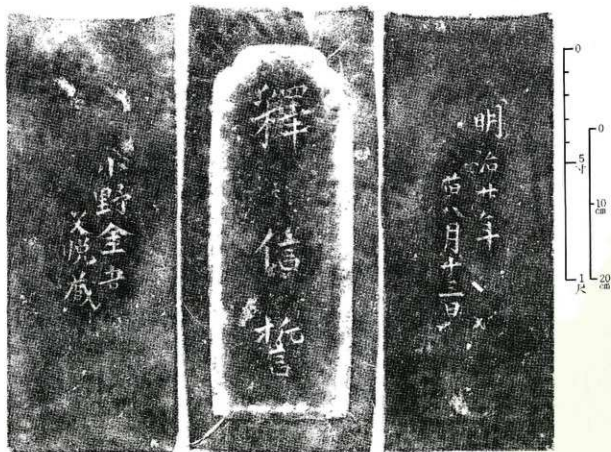 明治廿年
八月十三日
釋信誓
小野金吾
父悦蔵
0
5
寸
1
尺
0
10
cm
20
cm